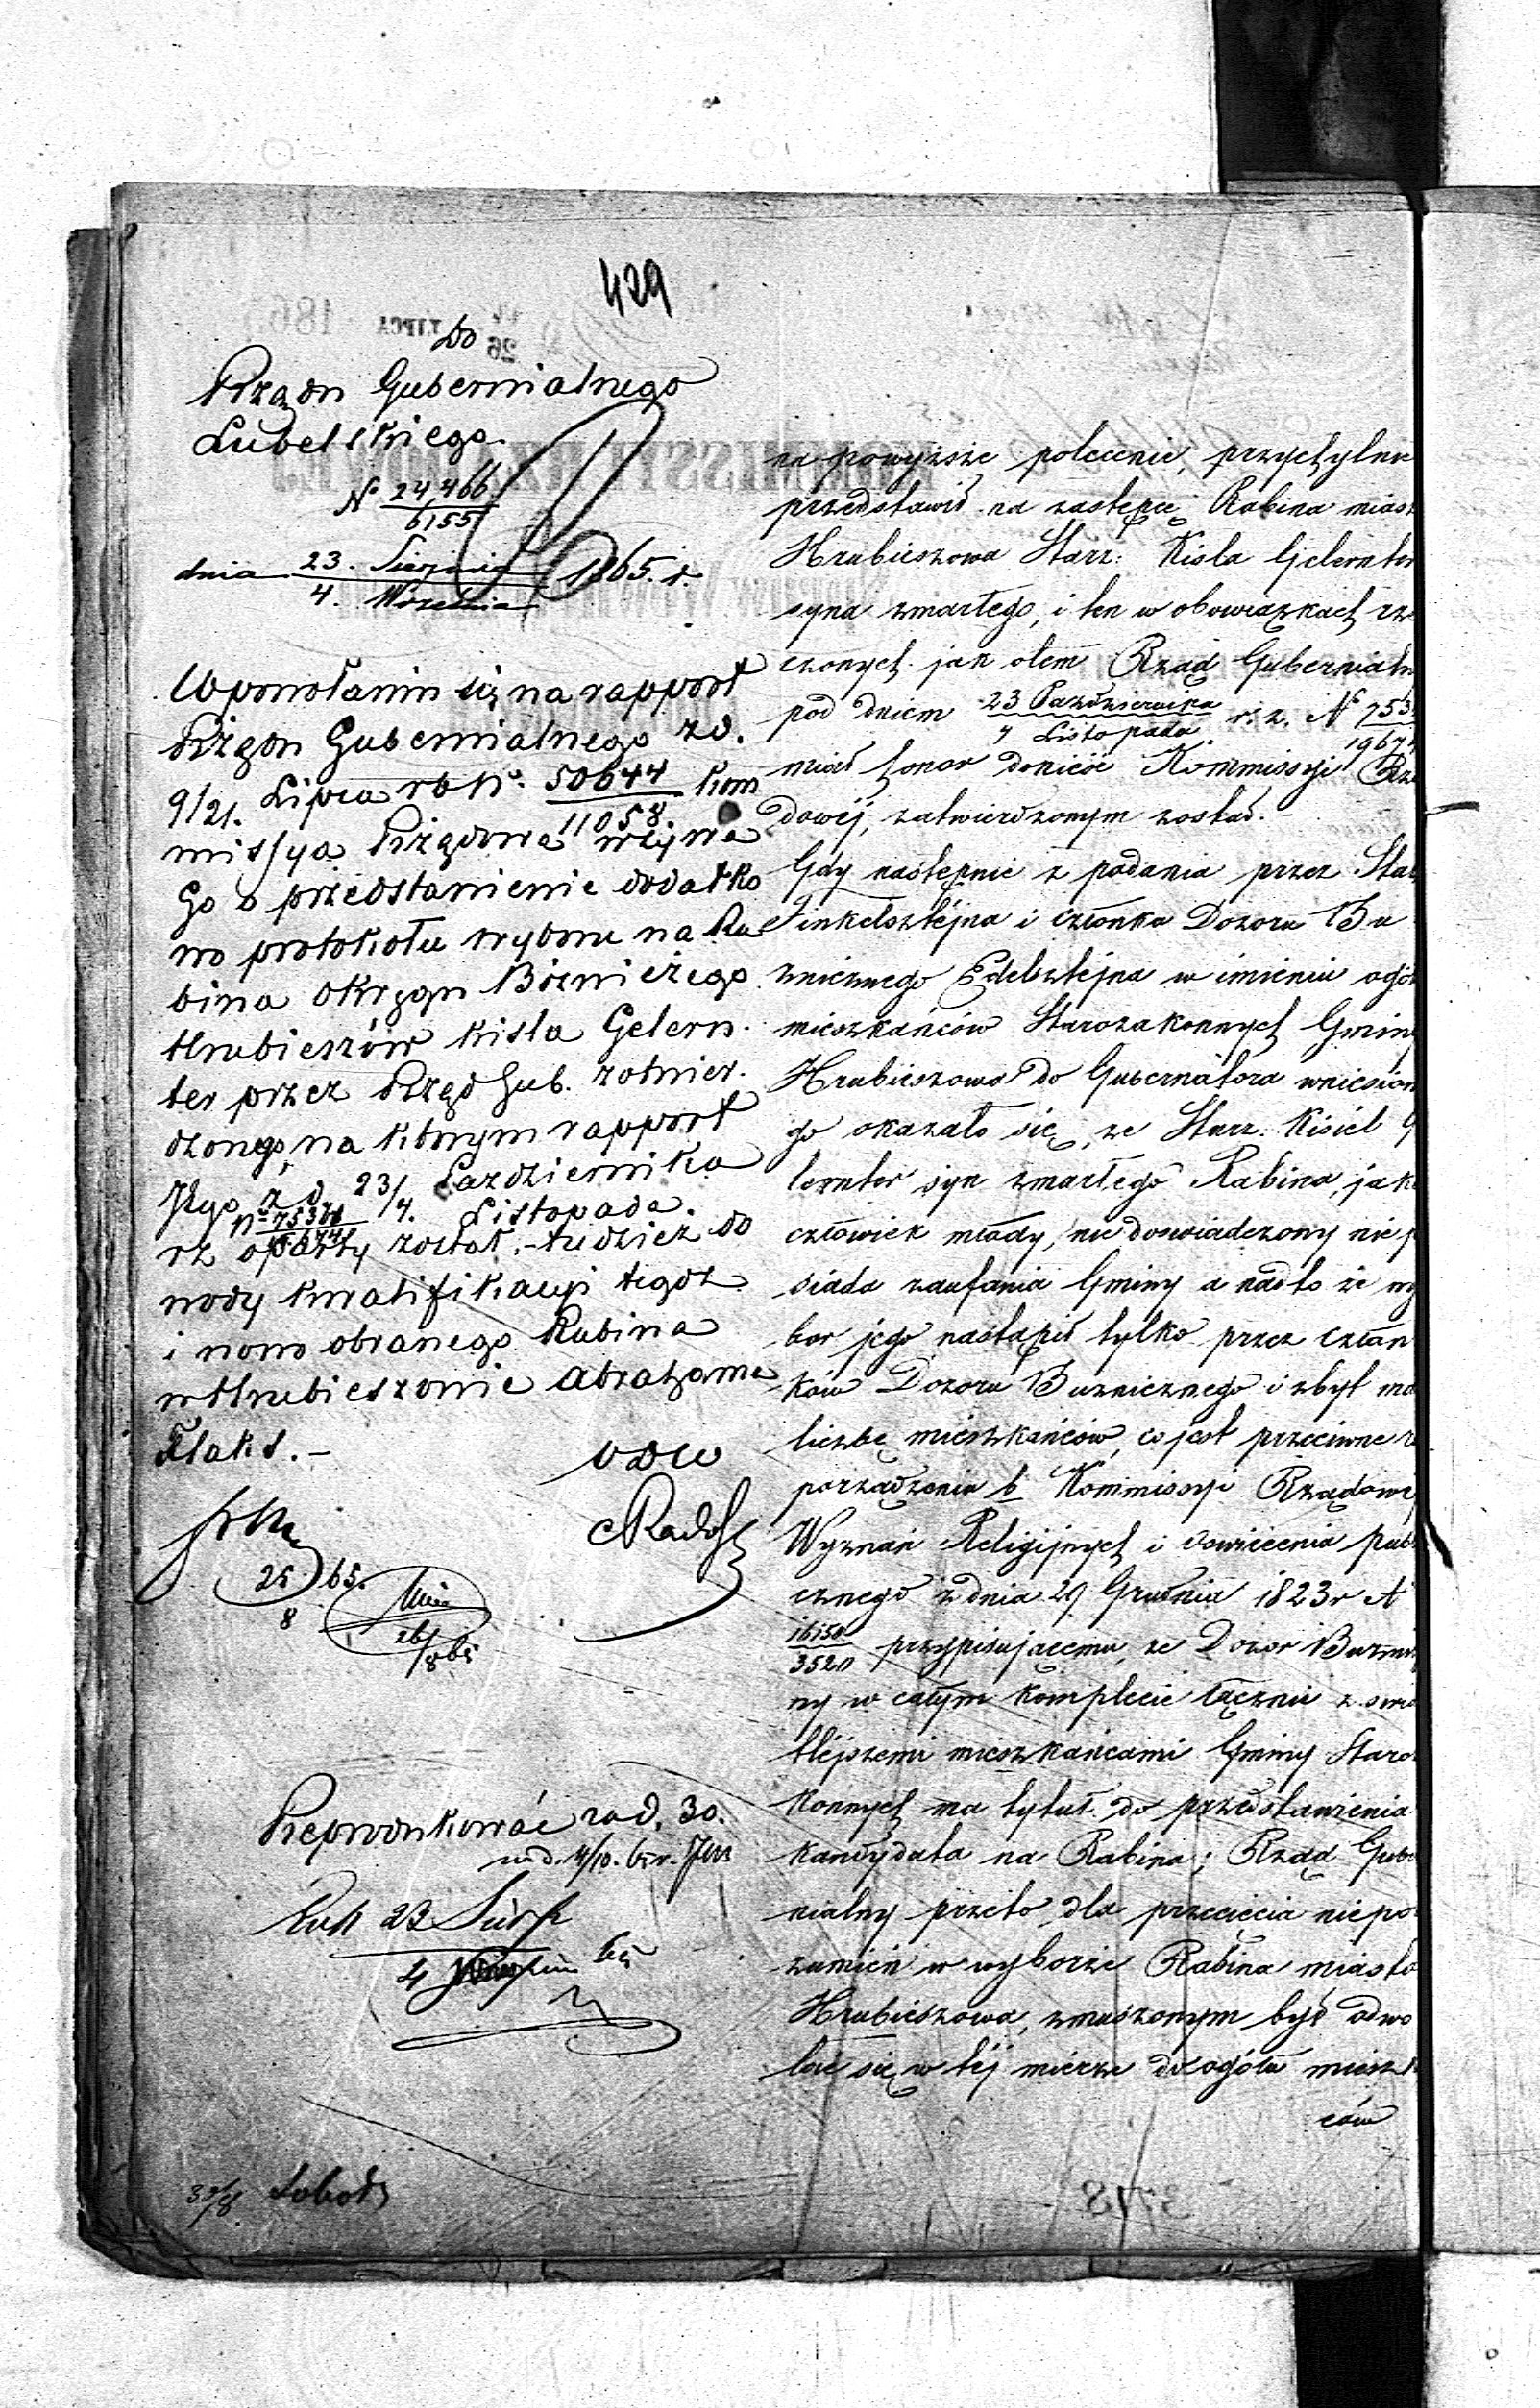 429
Do
Rządu Gubernialnego
Lubelskiego.
N° 24,466
6155
dnia 23. Sierpnia
4. Września
1865. r.
W powołaniu się na rapport
Rządu Gubernialnego z d.
9/21. Lipca rb N° 50644
11058. Kom
missya Rządowa wzywa
Go o przedstawienie dodatko
wo protokołu wyboru na Ra
bina Okręgu Bóżniczego
Hrubieszów Kisla Gelern.
ter przez Rząd Gub. zatwier.
dzonego, na którym rapport
Jego z d. 23/4. Października
Listopada.
N° 75376
19674
rz oparty został. – tudzież do
wody kwalifikacyi tegoż
i nowo obranego Rabina
w Hrubieszowie Abrahama
Flaks. –
25/8 65.
26/8 65
Reprodukować zad. 30.
4/10. 65 r.
23 Sierp
4
65
30/8.
na powyższe polecenie, przychylnie
przedstawił na zastępcę Rabina miast
Hrubieszowa Starz: Kisla Gelernter
syna zmarłego, i ten w obowiązkach rze
czonych jak otem Rząd Gubernialn
pod dniem 23 Października
4 Listopada r. z. N° 753
1967
miał honor donieść Kommissyi Rzą
dowéj, zatwierdzonym został.
Gdy następnie z podania przez Star
Finkelsztejna i członka Dozoru Bu
żnicznego Edelsztejna w imieniu ogół
mieszkańców Starozakonnych Gminy
Hrubieszowa do Gubernatora wniesion
go okazało się, że Starz. Kisiel G
lernter syn zmarłego Rabina, jako
człowiek młody, niedoświadczony nie p
siada zaufania Gminy a nadto że wy
bor jego nastąpił tylko przez człon
ków Dozoru Bużnicznego i zbyt ma
liczbę mieszkańców, co jest przeciwne ro
porządzeniu b Kommissyi Rządowej
Wyznań Religijnych i Oświecenia publ
cznego z dnia 29 Grudnia 1823 r N
16150
3520 przypisującemu, że Dozor Bużni
ny w całym Komplecie łącznie z świa
tlejszemi mieszkańcami Gminy Staroz
konnych ma tytuł do przedstawienia
kandydata na Rabina; Rząd Gube
rnialny przeto dla przecięcia niepo
zumień w wyborze Rabina miasta
Hrubieszowa, zmuszonym był odwo
łać się w téj mierze do ogółu mieszk
ców